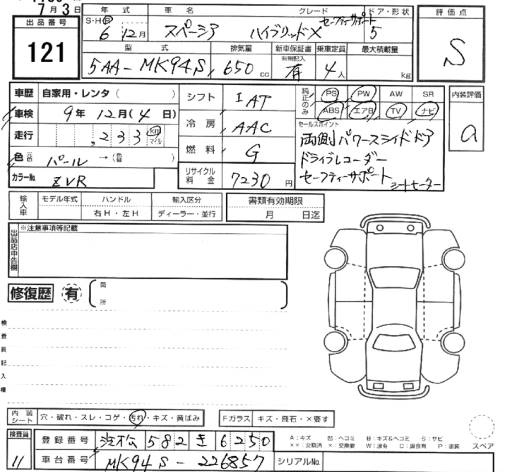 月3日
年式 車名 グレード ドア・形状 評価点
出品番号 S・H・R 6年12月 スペーシア ハイブリッドX セーフティサポート 5 S
121
型式 排気量 新車保証書 乗車定員 最大積載量
5AA-MK94S 650cc 有 4人 kg
車歴 自家用・レンタ( ) シフト IAT 純正のみ PS PW AW SR 内装評価
車検 9年12月(4日) ABS エアB TV ナビ a
走行 ,233 km マイル 冷房 AAC セールスポイント
両側パワースライドドア
色 パール →(色) 燃料 G ドライブレコーダー
カラーNo. ZVR リサイクル料金 7230円 セーフティサポート シートヒーター
輸入車 モデル年式 ハンドル 輸入区分 書類有効期限
右H・左H ディーラー・並行 月 日迄
出品店申告欄 ※注意事項等記載
修復歴 有 箇所
検査員記入欄
内装シート 穴・破れ・スレ・コゲ・汚れ・キズ・黄ばみ Fガラス キズ・飛石・×要す
検査員 登録番号 浜松 582 き 6250
A:キズ B:ヘコミ S:サビ
××:交換済 ×:交換要 W:波有 C:腐食有 P:塗装 スペア
11 車台番号 MK94S-226857 シリアルNo.